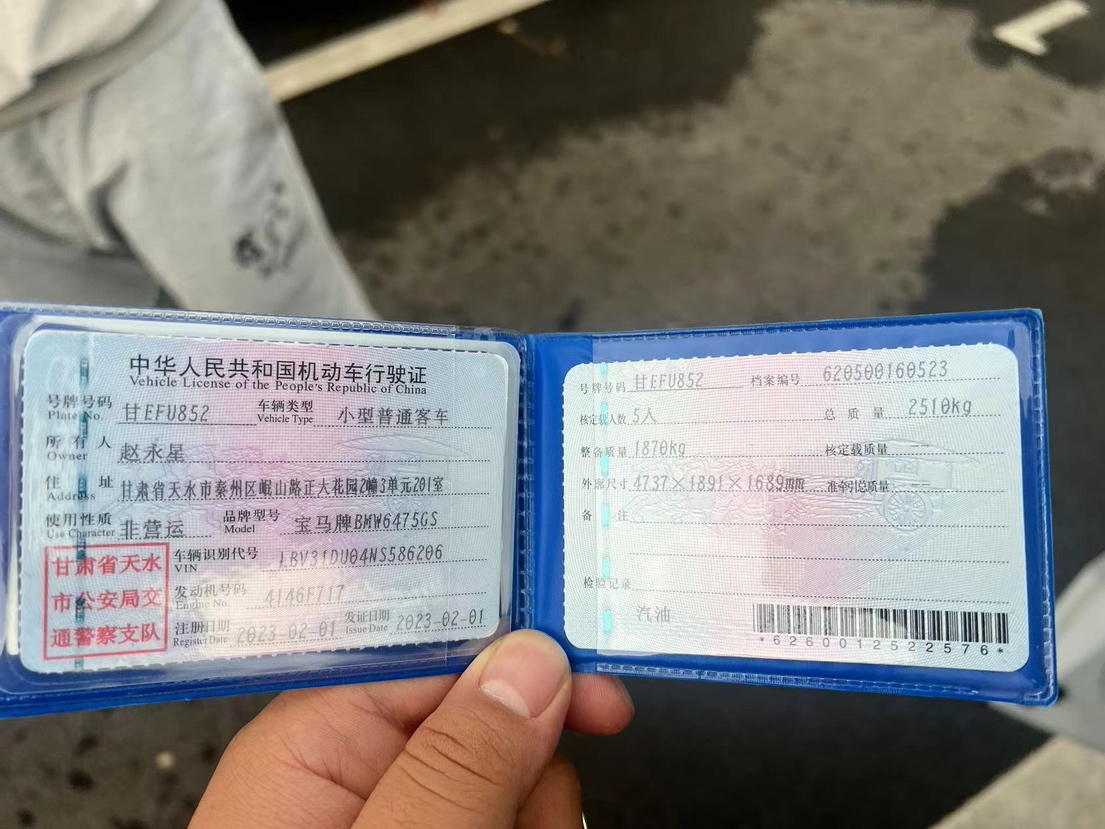 中华人民共和国机动车行驶证
Vehicle License of the People's Republic of China
号牌号码 甘EFU852 车辆类型 小型普通客车
Plate No. Vehicle Type
所有人 赵永星
Owner
住址 甘肃省天水市秦州区岷山路正大花园2幢3单元201室
Address
使用性质 非营运 品牌型号 宝马牌BMW6475GS
Use Character Model
甘肃省天水
市公安局交
通警察支队
车辆识别代号 LBV31DU04NS586206
VIN
发动机号码 4146F717
Engine No.
注册日期 2023-02-01 发证日期 2023-02-01
Register Date Issue Date
号牌号码 甘EFU852 档案编号 620500160523
核定载人数 5人 总质量 2510kg
整备质量 1870kg 核定载质量
外廓尺寸 4737×1891×1689mm 准牵引总质量
备注
检验记录
汽油
*6260012522576*